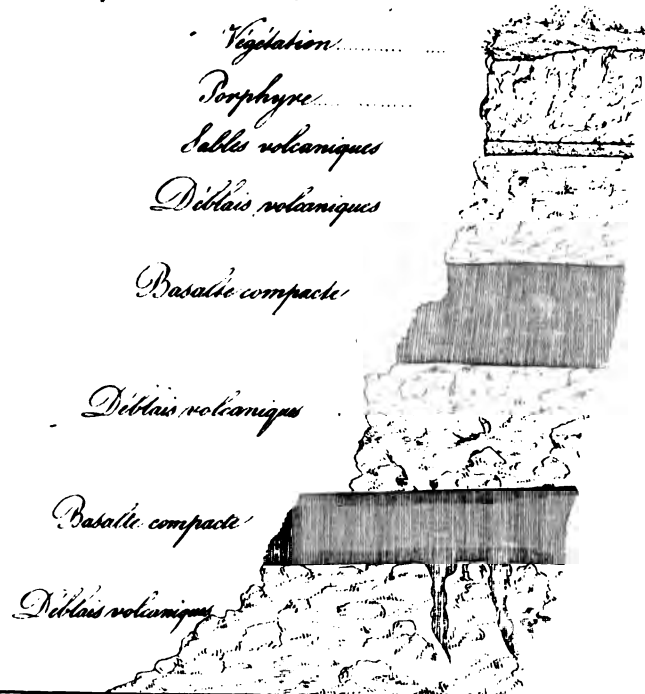 Végétation
Porphyre
Sables volcaniques
Déblais volcaniques
Basalte compacte
Déblais volcaniques
Basalte compacte
Déblais volcaniques